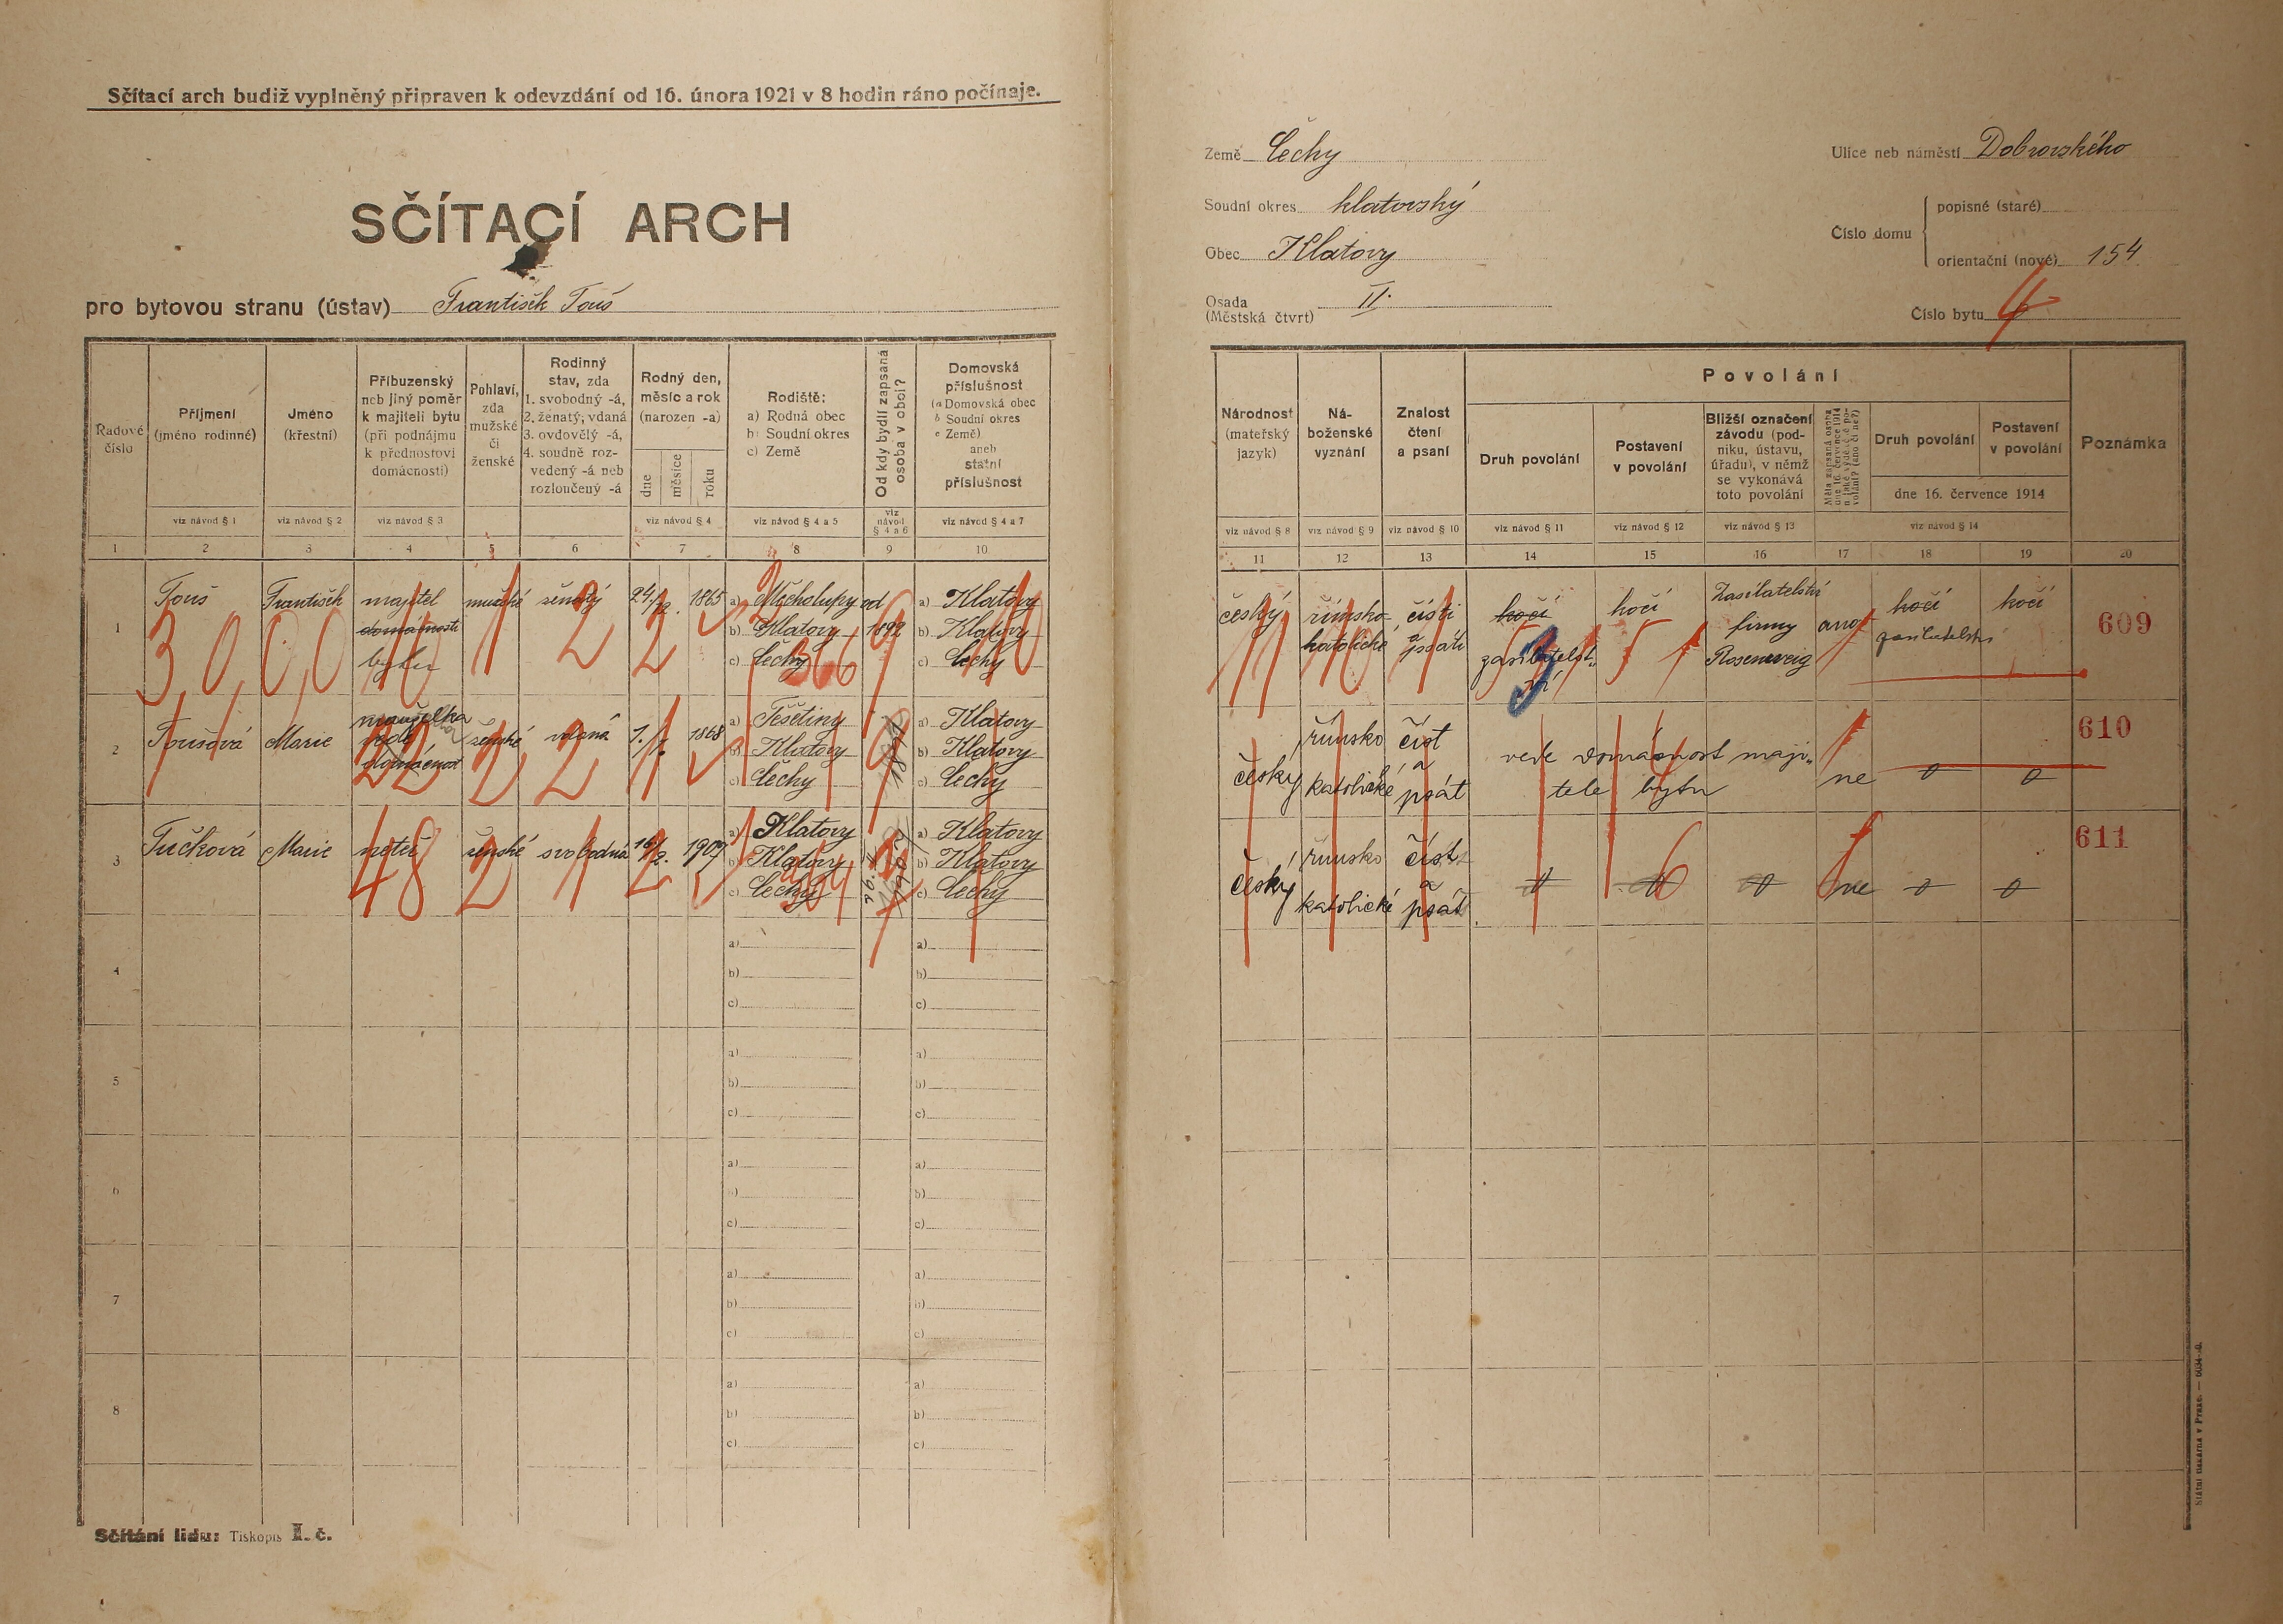 Sčítací arch budiž vyplněný připraven k odevzdání od 16. února 1921 v 8 hodin ráno počínaje.
SČÍTACÍ ARCH
pro bytovou stranu (ústav) František Touš
Země Čechy
Soudní okres klatovský
Obec Klatovy
Osada II.
(Městská čtvrt)
Ulice neb náměstí Dobrovského
Číslo domu
popisné (staré)
orientační (nové) 154
Číslo bytu 4
Řadové číslo
Příjmení (jméno rodinné)
Jméno (křestní)
Příbuzenský neb jiný poměr k majiteli bytu (při podnájmu k přednostovi domácnosti)
Pohlaví, zda mužské či ženské
Rodinný stav, zda 1. svobodný -á, 2. ženatý, vdaná 3. ovdovělý -á, 4. soudně rozvedený -á neb rozloučený -á
Rodný den, měsíc a rok (narozen -a)
dne měsíce roku
Rodiště: a) Rodná obec b) Soudní okres c) Země
Od kdy bydlí zapsaná osoba v obci?
Domovská příslušnost (a Domovská obec b Soudní okres c Země) aneb státní příslušnost
viz návod § 1 viz návod § 2 viz návod § 3 viz návod § 4 viz návod § 4 a 5 viz návod § 4 a 6 viz návod § 4 a 7
1 2 3 4 5 6 7 8 9 10
Národnost (mateřský jazyk)
Náboženské vyznání
Znalost čtení a psaní
Povolání
Druh povolání
Postavení v povolání
Bližší označení závodu (podniku, ústavu, úřadu), v němž se vykonává toto povolání
Druh povolání
Postavení v povolání
dne 16. července 1914
Poznámka
viz návod § 8 viz návod § 9 viz návod § 10 viz návod § 11 viz návod § 12 viz návod § 13 viz návod § 14
11 12 13 14 15 16 17 18 19 20
1 Touš František majitel domácnosti bytu mužské ženatý 24./12. 1865 a) Měcholupy b) Klatovy c) Čechy od 1892 a) Klatovy b) Klatovy c) Čechy
český římsko-katolické čísti a psáti kočí zasílatelství kočí Zasílatelství firmy Rosenzweig ano kočí zasílatelství kočí 609
2 Toušová Marie manželka vede domácnost ženské vdaná 1868 a) Těšetiny b) Klatovy c) Čechy a) Klatovy b) Klatovy c) Čechy
český římsko katolické číst a psát vede domácnost majitele bytu ne 0 0 610
3 Tučková Marie neteř ženské svobodná 16/2. 1907 a) Klatovy b) Klatovy c) Čechy a) Klatovy b) Klatovy c) Čechy
český římsko katolické číst a psát 0 0 0 ne 0 0 611
4 a) b) c) a) b) c)
5 a) b) c) a) b) c)
6 a) b) c) a) b) c)
7 a) b) c) a) b) c)
8 a) b) c) a) b) c)
Sčítání lidu: Tiskopis I. č.
Státní tiskárna v Praze.